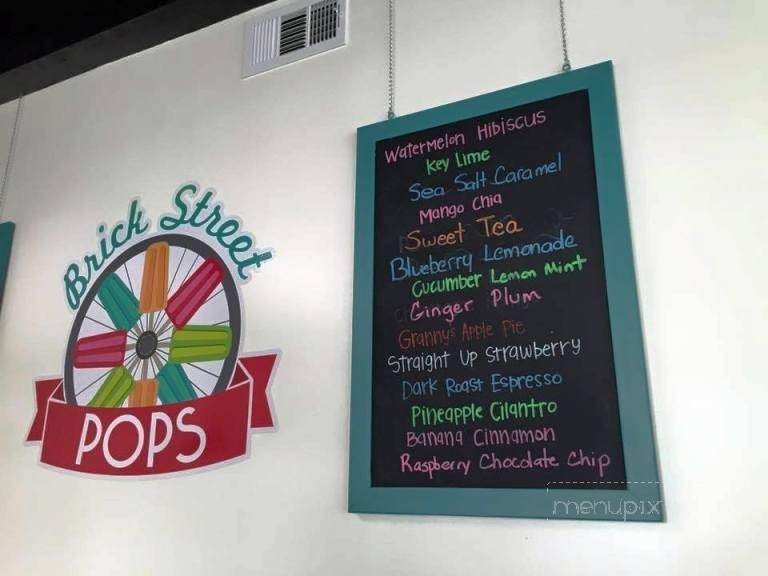 Brick Street
POPS
Watermelon Hibiscus
Key Lime
Sea Salt Caramel
Mango Chia
Sweet Tea
Blueberry Lemonade
Cucumber Lemon Mint
Ginger Plum
Grannys Apple Pie
Straight Up Strawberry
Dark Roast Espresso
Pineapple Cilantro
Banana Cinnamon
Raspberry Chocolate Chip
menupix